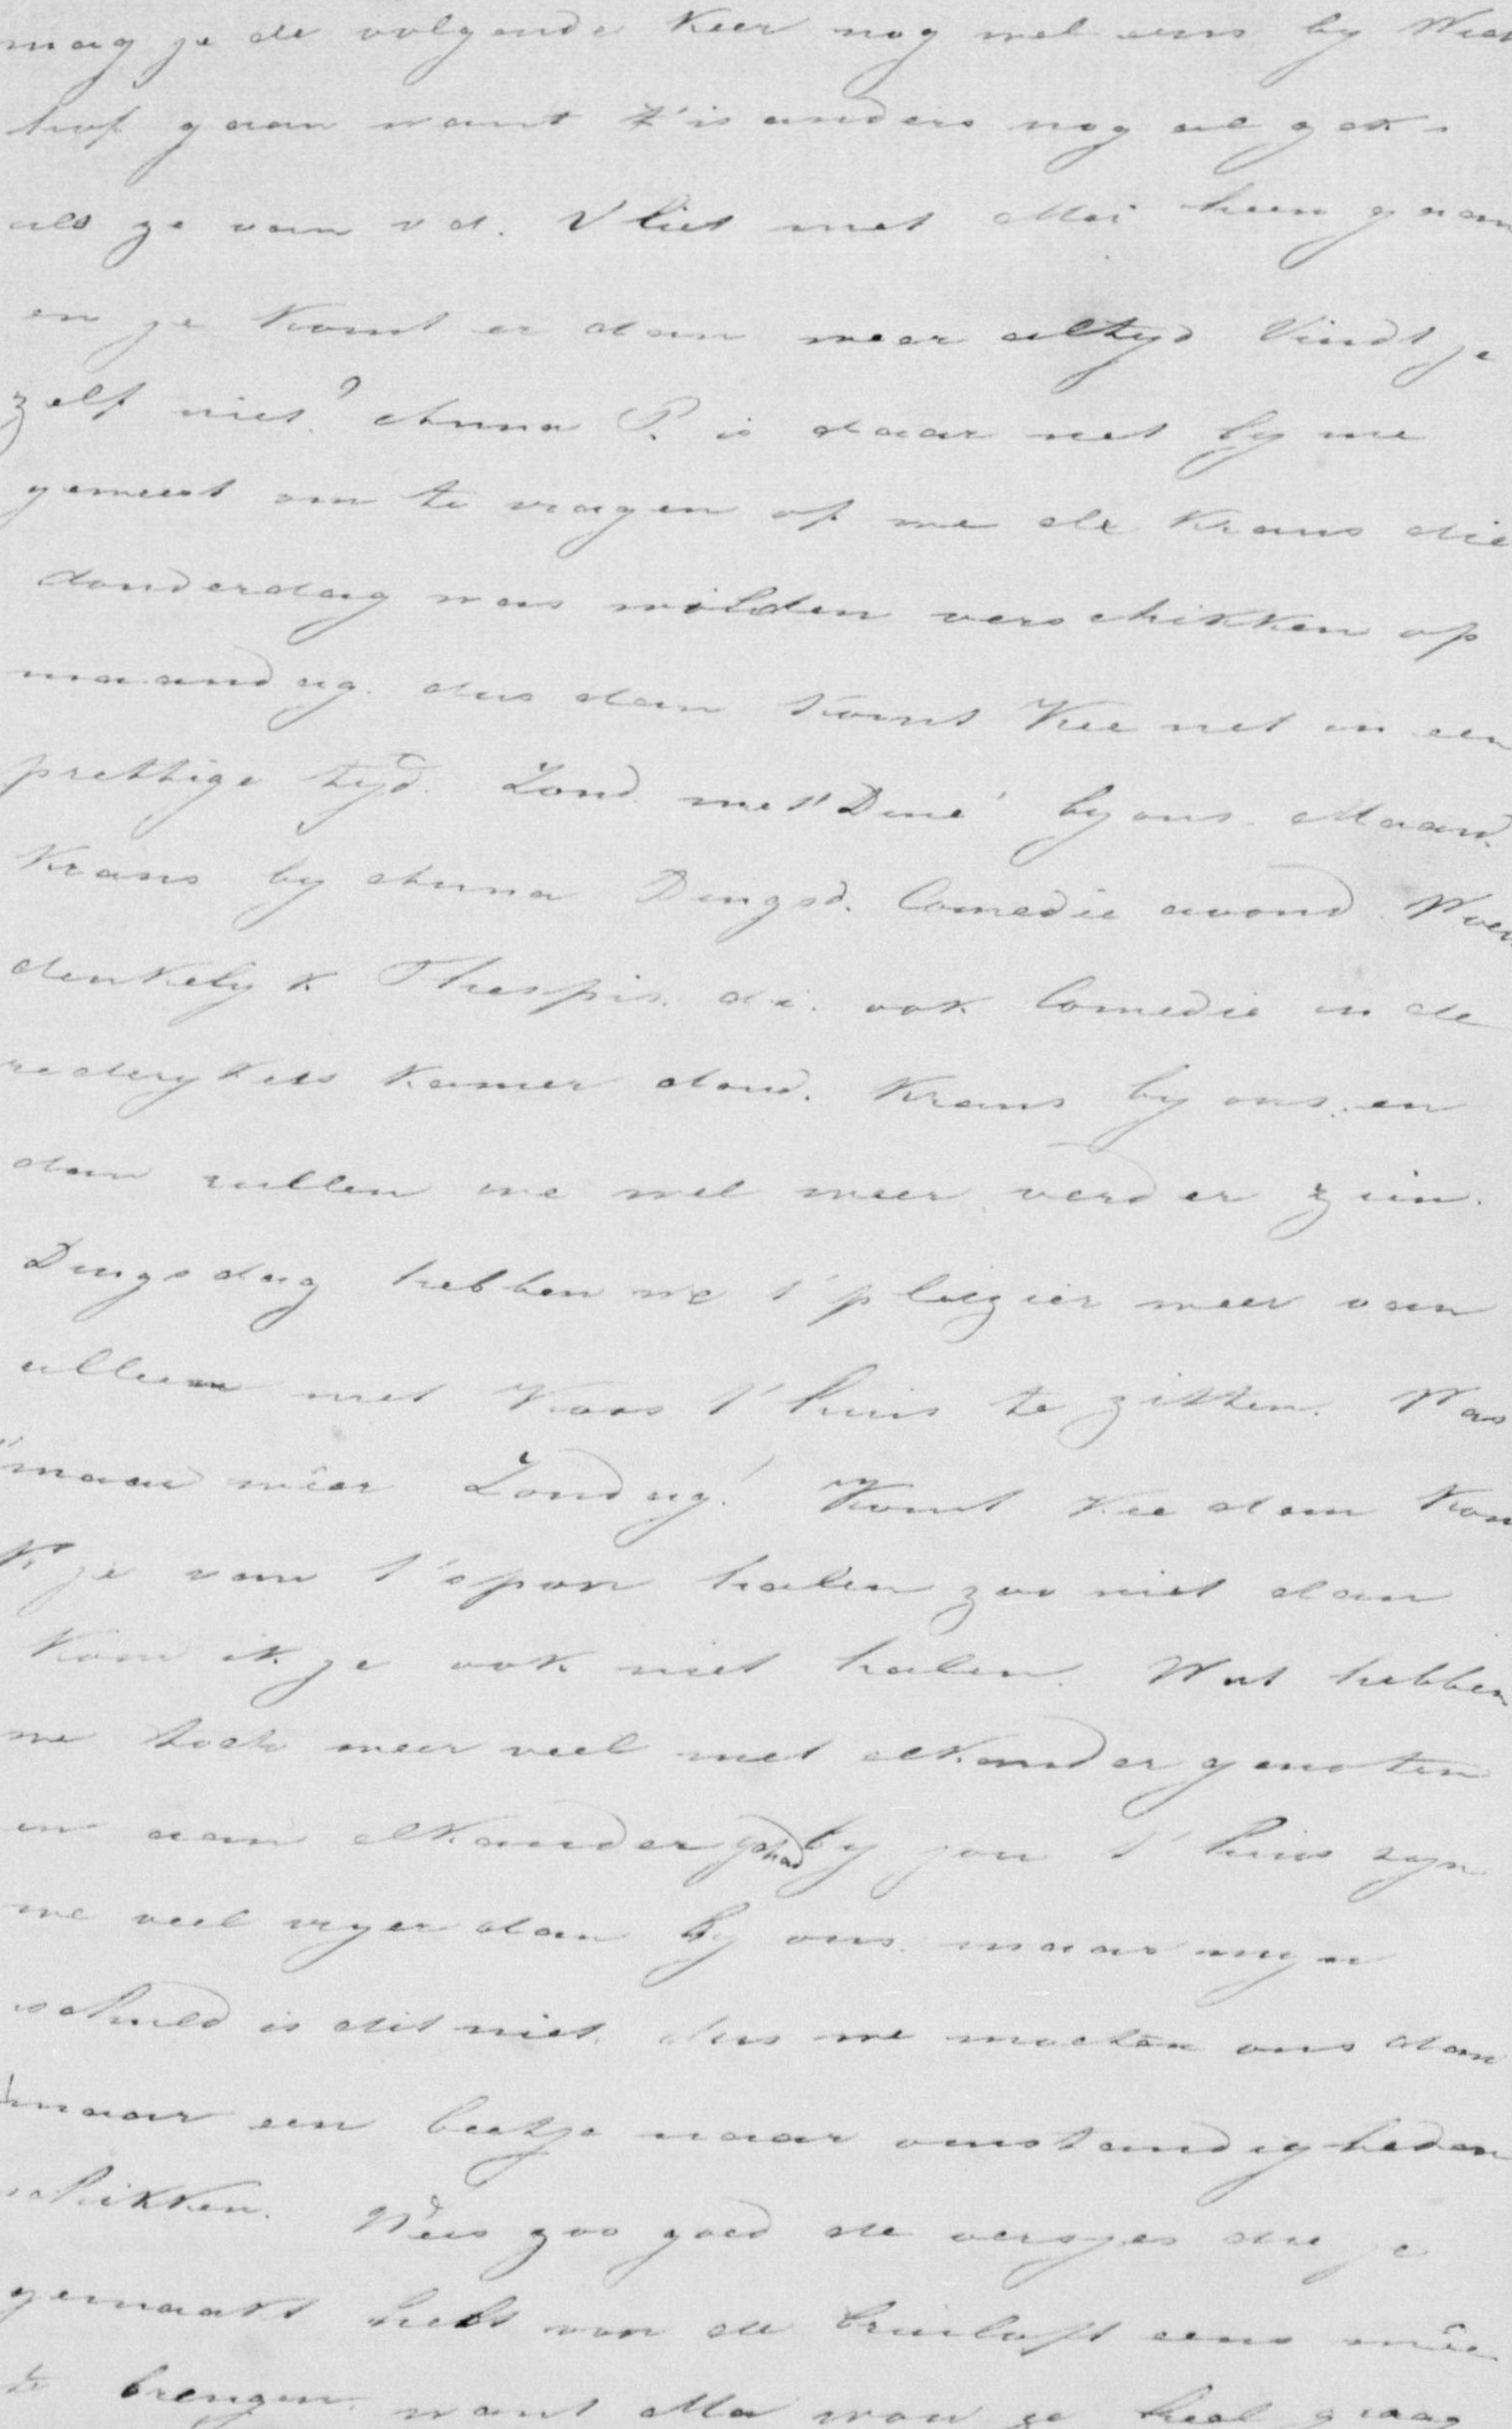 mag je de volgende keer nog wel eens by
hof gaan want t'is anders nog al gek.
als ge van v d. Vliet met Moi heen gaan
en je komt er dan weer altyd Vindt je
zelf niet? Anna P. is daar net by me
geweest om te vragen of we de Krans die
donderdag was wilden verschikken op
maandag. dus dan komt Kee net in een
prettige tyd. Zond. met Diné by ons. Maand.
Krans by Anna Dingsd. Comedie avond. Woen
denkelyk Thespis. d.i. ook Comedie in de
rederykers Kamer dond. Krans by ons. en
dan zullen we wel weer verder zien.
Dingsdag hebben we t'plezier weer van
alleen met Koos t'huis te zitten. Was
't maar weer Zondag! Komt Kee dan kom
k je van t'spoor halen zoo niet dan
Kom ik je ook niet halen. Wat hebben
we toch weer veel met elkander genoten
en aan elkander gehad by jou t'huis zyn
we veel vryer dan by ons. maar myn
schuld is dit niet. dus we moeten ons dan
maar een beetje naar omstandigheden
schikken. Wees zoo goed de versjes die je
gemaakt hebt van de bruiloft eens mêe
te brengen. want Ma wou ze heel graag